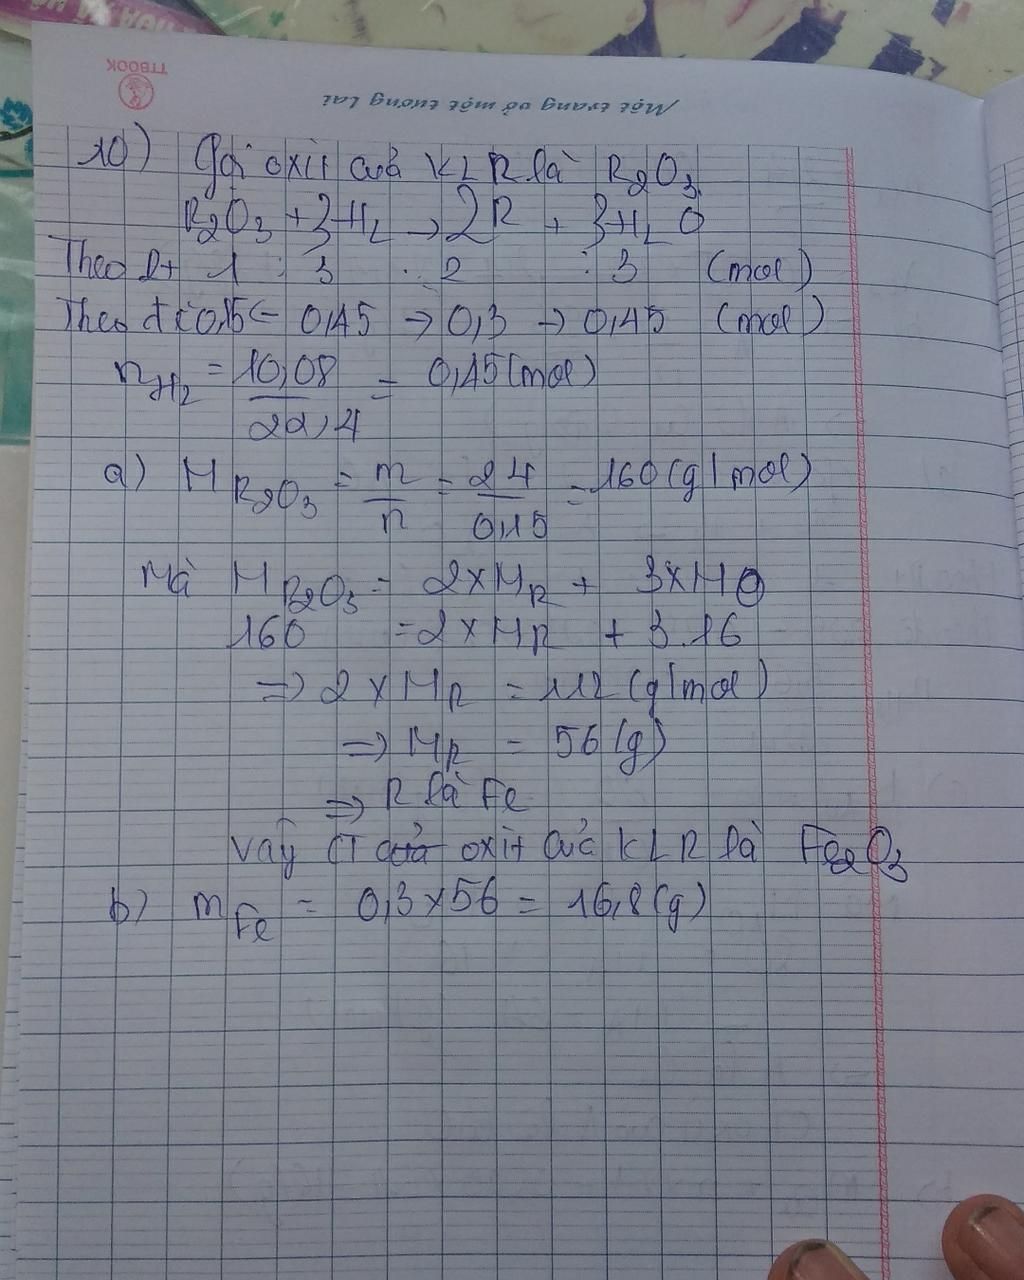 TTBOOK
Một trang vở một tương lai
10) Gọi oxit của KLR là R2O3
R2O3 + 3H2 → 2R + 3H2O
Theo Pt 1 : 3 : 2 : 3 (mol)
Theo đề 0,15 ← 0,45 → 0,3 → 0,45 (mol)
nH2 = 10,08/22,4 = 0,45 (mol)
a) MR2O3 = m/n = 24/0,15 = 160 (g/mol)
Mà MR2O3 = 2×MR + 3×MO
160 = 2×MR + 3.16
⇒ 2×MR = 112 (g/mol)
⇒ MR = 56 (g)
⇒ R là Fe
Vậy CT của oxit của KLR là Fe2O3
b) mFe = 0,3×56 = 16,8 (g)